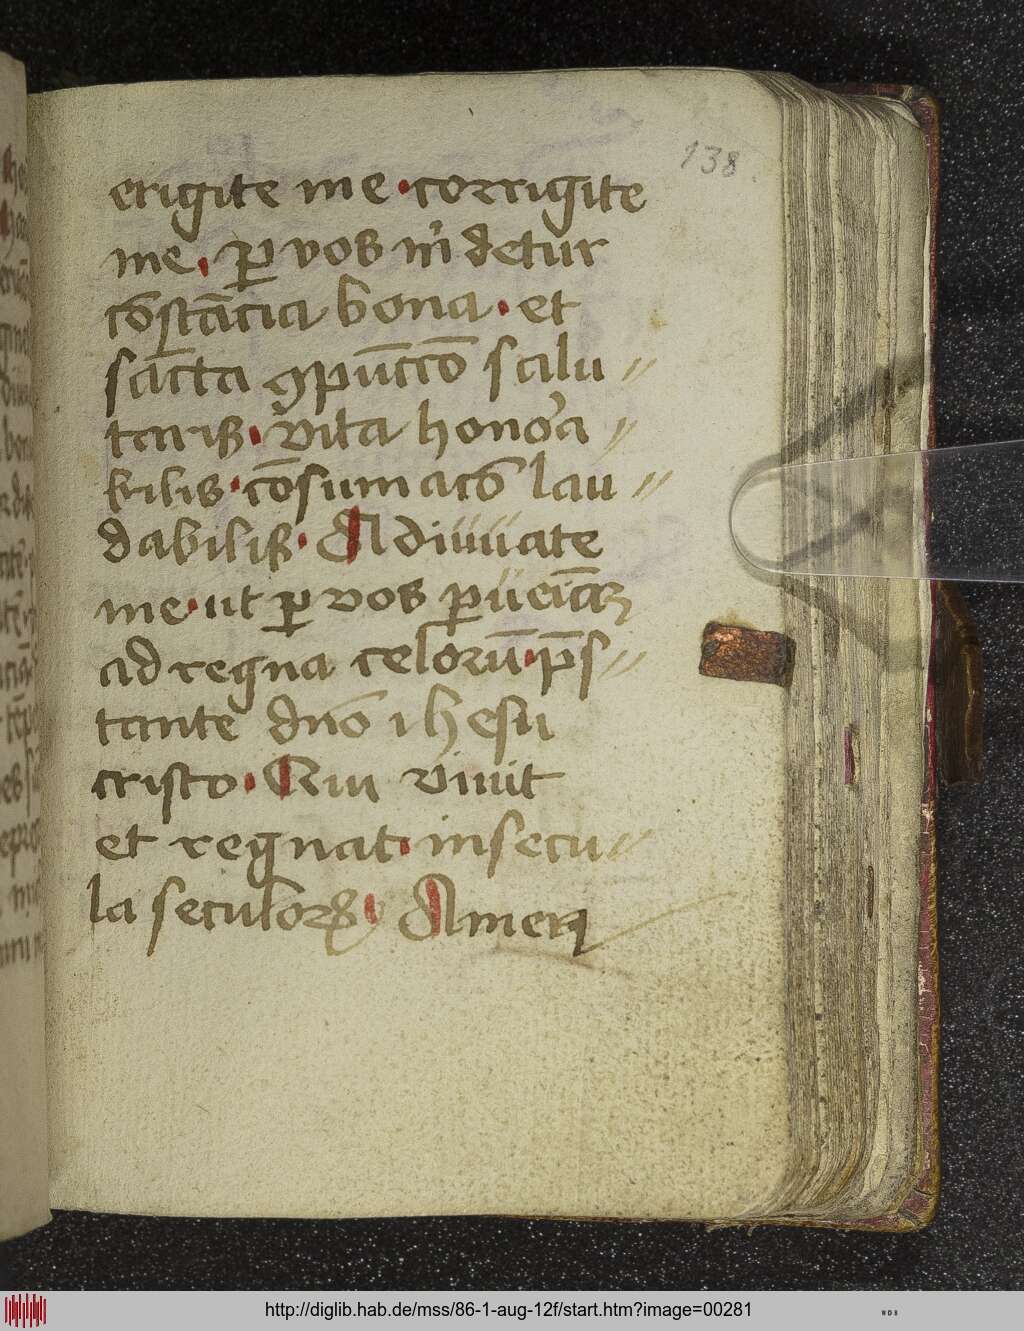 138.
erigite me · corrigite
me · ꝑ vos m̄ detur
cōstācia bona · et
sācta ꝯpūccō salu〃
taris · vita honora〃
bilis · cōsumacō lau〃
dabilis · Adiuuate
me · ut ꝑ vos ꝑueiāꝫ
ad regna celorū · p̄s〃
tante dn̄o ihesu
cristo · Qui viuit
et regnat · in secu〃
la seculoꝝ · Amen
http://diglib.hab.de/mss/86-1-aug-12f/start.htm?image=00281